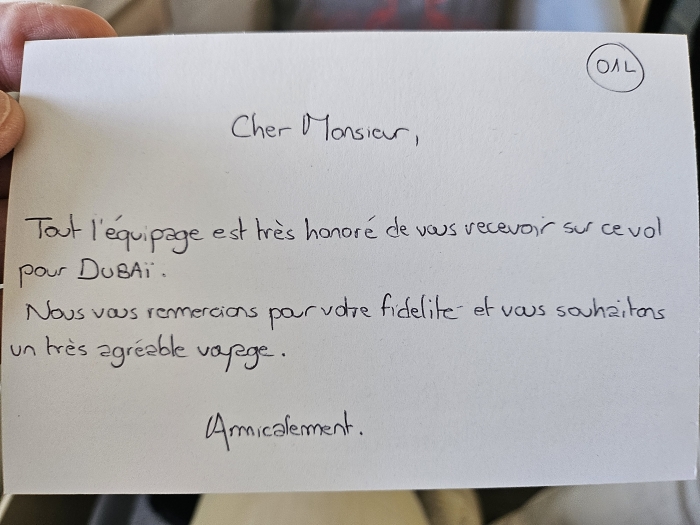 01L
Cher Monsieur,
Tout l'équipage est très honoré de vous recevoir sur ce vol
pour DUBAÏ.
Nous vous remmercions pour votre fidelité et vous souhaitons
un très agréable voyage.
Amicalement.